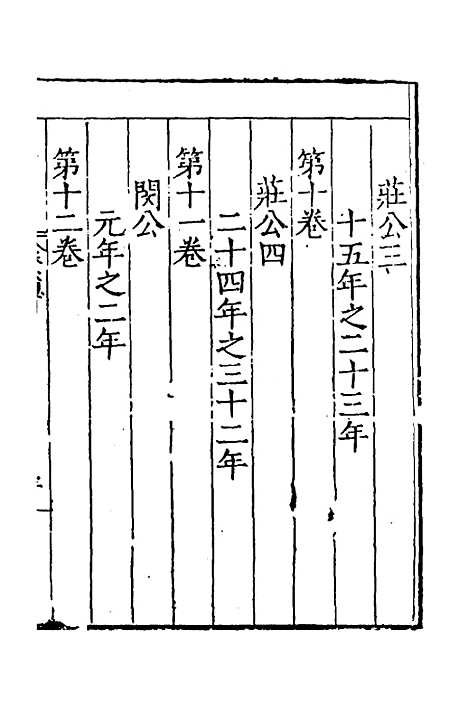 莊公三
十五年之二十三年
第十卷
莊公四
二十四年之三十二年
第十一卷
閔公
元年之二年
第十二卷